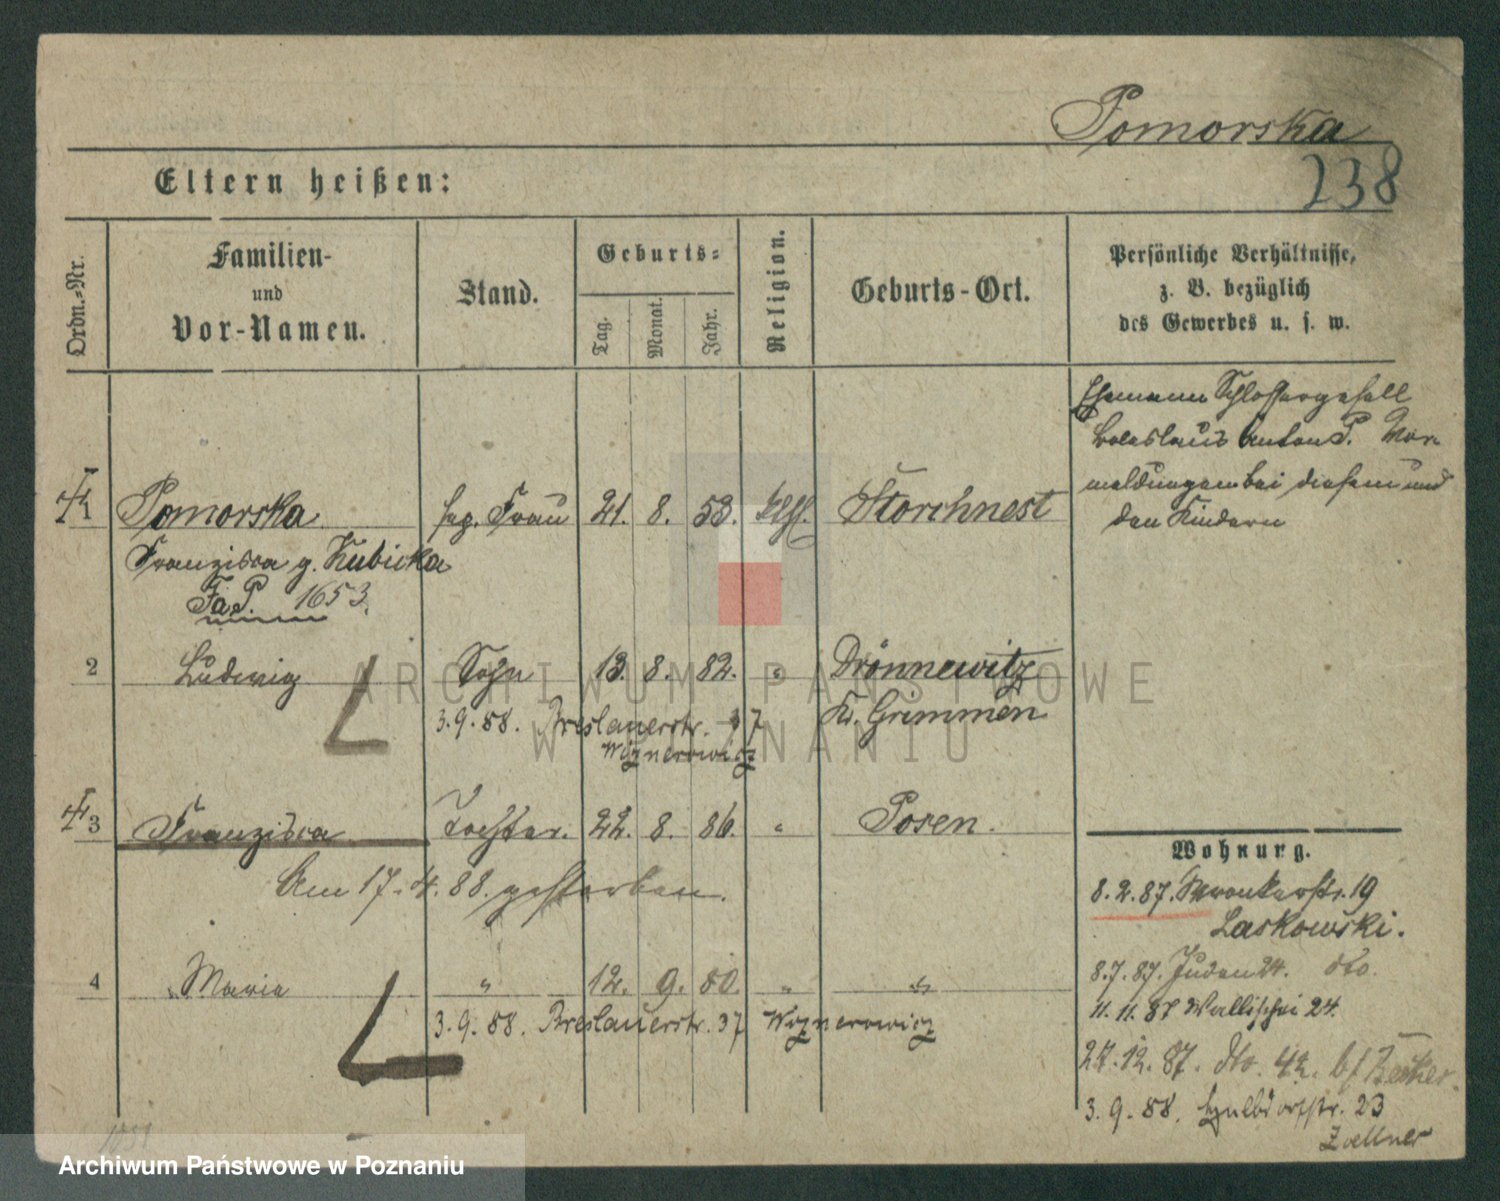 Pomorska
238
Eltern heißen:
Ordn.-Nr.
Familien-
und
Vor-Namen.
Stand.
Geburts-
Tag.
Monat.
Jahr.
Religion.
Geburts-Ort.
Persönliche Verhältnisse,
z. B. bezüglich
des Gewerbes u. s. w.
Ehemann Schlossergesell
Boleslaus Anton P. Vor
meldungen bei diesem und
den Kindern
1 Pomorska Frau 21. 8. 53. Storchnest
Franzisca g. Kubicka
Fa P. 1653
2 Ludwig Sohn 13. 8. 82. " Drönnewitz
3.9.88. Breslauerstr. 37 Kr. Grimmen
Wiznerowicz
3 Franzisca Tochter. 22. 8. 86. " Posen.
Am 17.4.88. gestorben.
4 Maria " 12. 9. 80. " "
3.9.88. Breslauerstr. 37 Wiznerowicz
Wohnung.
8.2.87. Wronkerstr. 19
Laskowski.
8.7.87. Juden 24. dto.
11.11.87 Wallischei 24.
27.12.87. dto. 42. b/ Becker.
3.9.88. 23
Zoellner
1031
ARCHIWUM PAŃSTWOWE
W POZNANIU
Archiwum Państwowe w Poznaniu